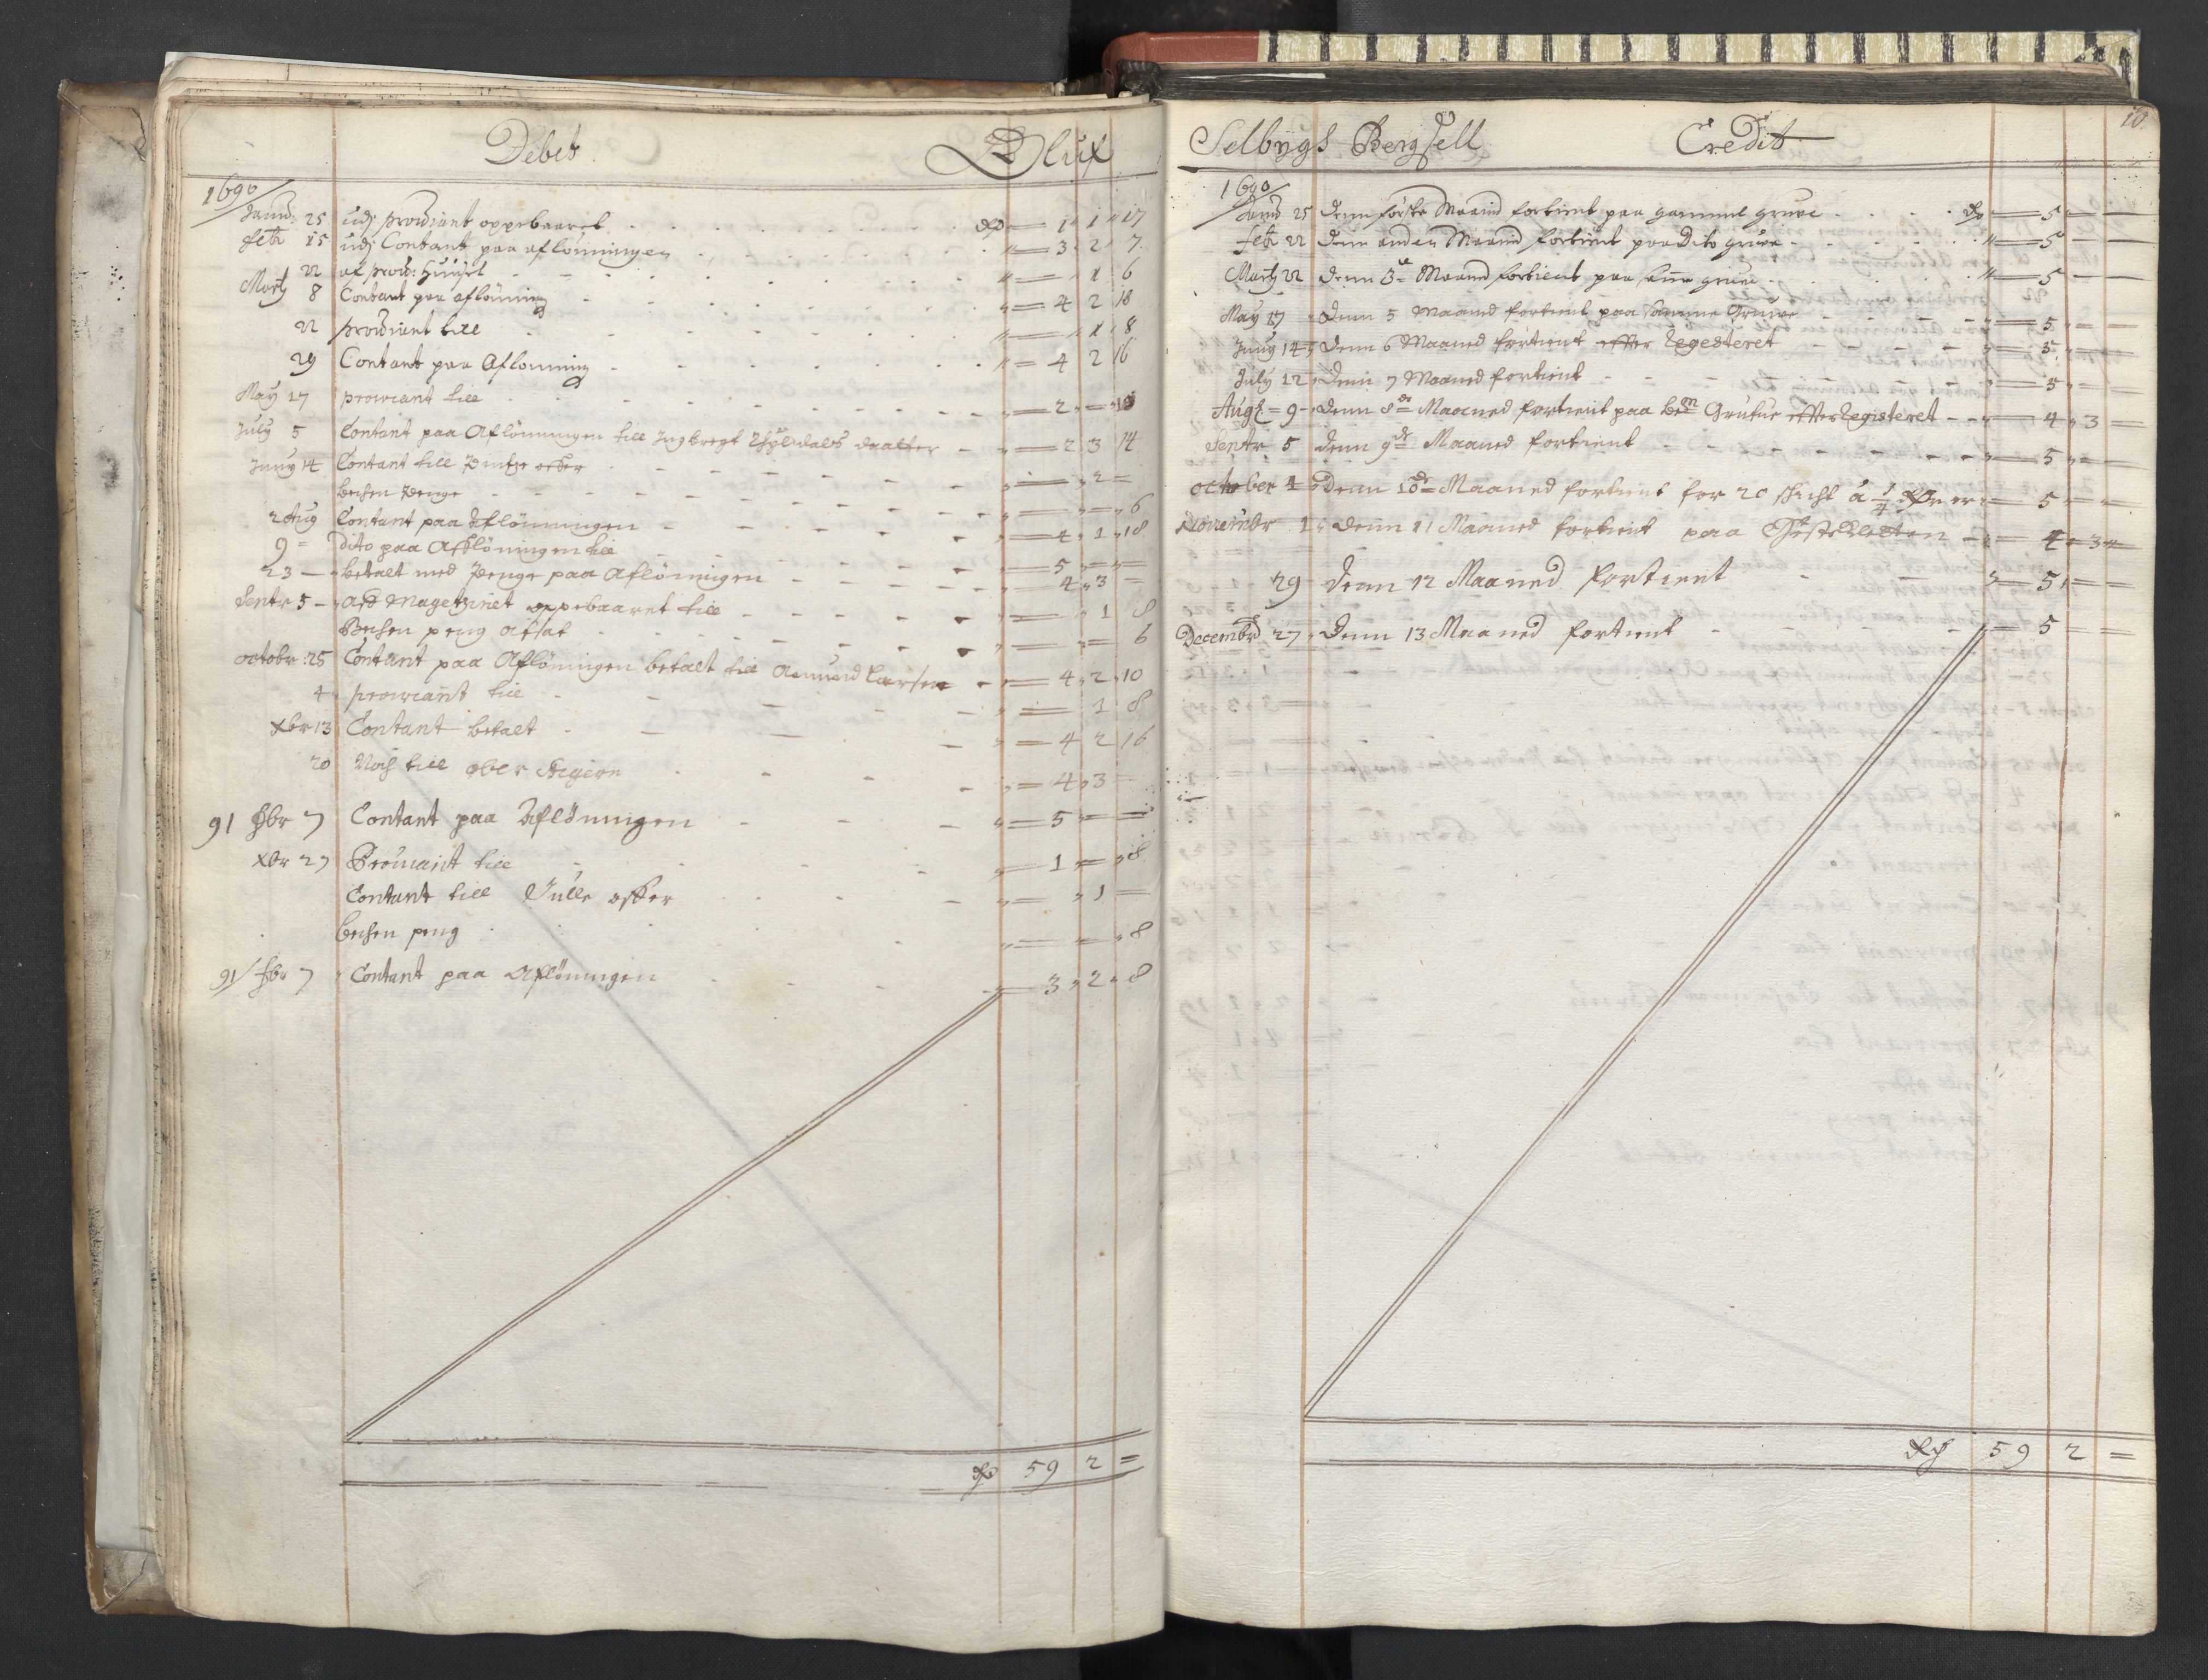 Debet Oluf
1690
Janu: 25 udj Proviant oppebaaret - - - Rdr 1 1 17
feb: 15 udj Contant paa aflønningen - - - 3 2 7
22 af prov: Huuset - - - 1 6
Marty 8 Contant paa aflønning - - - 4 2 18
22 proviant till - - - 1 8
29 Contant paa Aflønning - - - 4 2 16
May 17 proviant till - - - 2 =
July 5 Contant paa Aflønningen till Ingbregt - - - 2 3 14
Juny 14 Contant till offer - - - 2 =
bøchsen Penge - - - 6
2 Aug Contant paa aflønningen - - - 4 1 18
9 = dito paa Afløningen till - - - 5 = =
23 - betalt med Penge paa Aflønningen - - - 4 3 =
Septr 5 - aff Magetzinet oppebaaret till - - - 1 8
Bøchsen peng afsat - - - 6
octobr: 25 Contant paa Aflønningen betalt till Amund Larsen - 4 2 10
4 proviant till - - - 1 8
Xbr 13 Contant betalt - - - 4 2 16
20 Noch till ober Stigern - - - 4 3 =
91 fbr 7 Contant paa Aflønningen - - - 5 = =
Xbr 27 Proviant till - - - 1 = 18
Contant till Julle offer - - - 1 =
bøchsen peng - - - 8
91 / fbr 7 Contant paa Aflønningen - - - 3 2 8
Rdr 59 2 =
Selbygs Bergsell Credit 10.
1690
Janu 25 denn første Maanid fortient paa gammel gruve - - - Rdr 5 - -
feb: 22 denn anden Maanid fortient paa Dito gruve - - - 5 - -
Marty 22 denn 3de Maanid fortient paa gruve - - - 5 - -
May 17 Denn 5 Maaned fortient paa samme Gruve - - - 5 - -
Juny 14 Denn 6 Maaned fortient effter Regesteret - - - 5 - -
July 12 Denn 7 Maaned fortient - - - 5 - -
Augt = 9 - Denn 8de Maaned fortient paa bem Grufue effter Registeret - - 4 3 =
Septr. 5 denn 9de Maaned fortient - - - 5 =
october 4 Denn 10de Maaned fortient for 20 schicht á 1/4 Rdr er = 5 - -
Novembr 1 Denn 11 Maaned fortient paa - 4 3 -
29 denn 12 Maaned fortient - - - 5 =
Decembr 27 Denn 13 Maaned fortient - - - 5 - -
Rdr 59 2 =